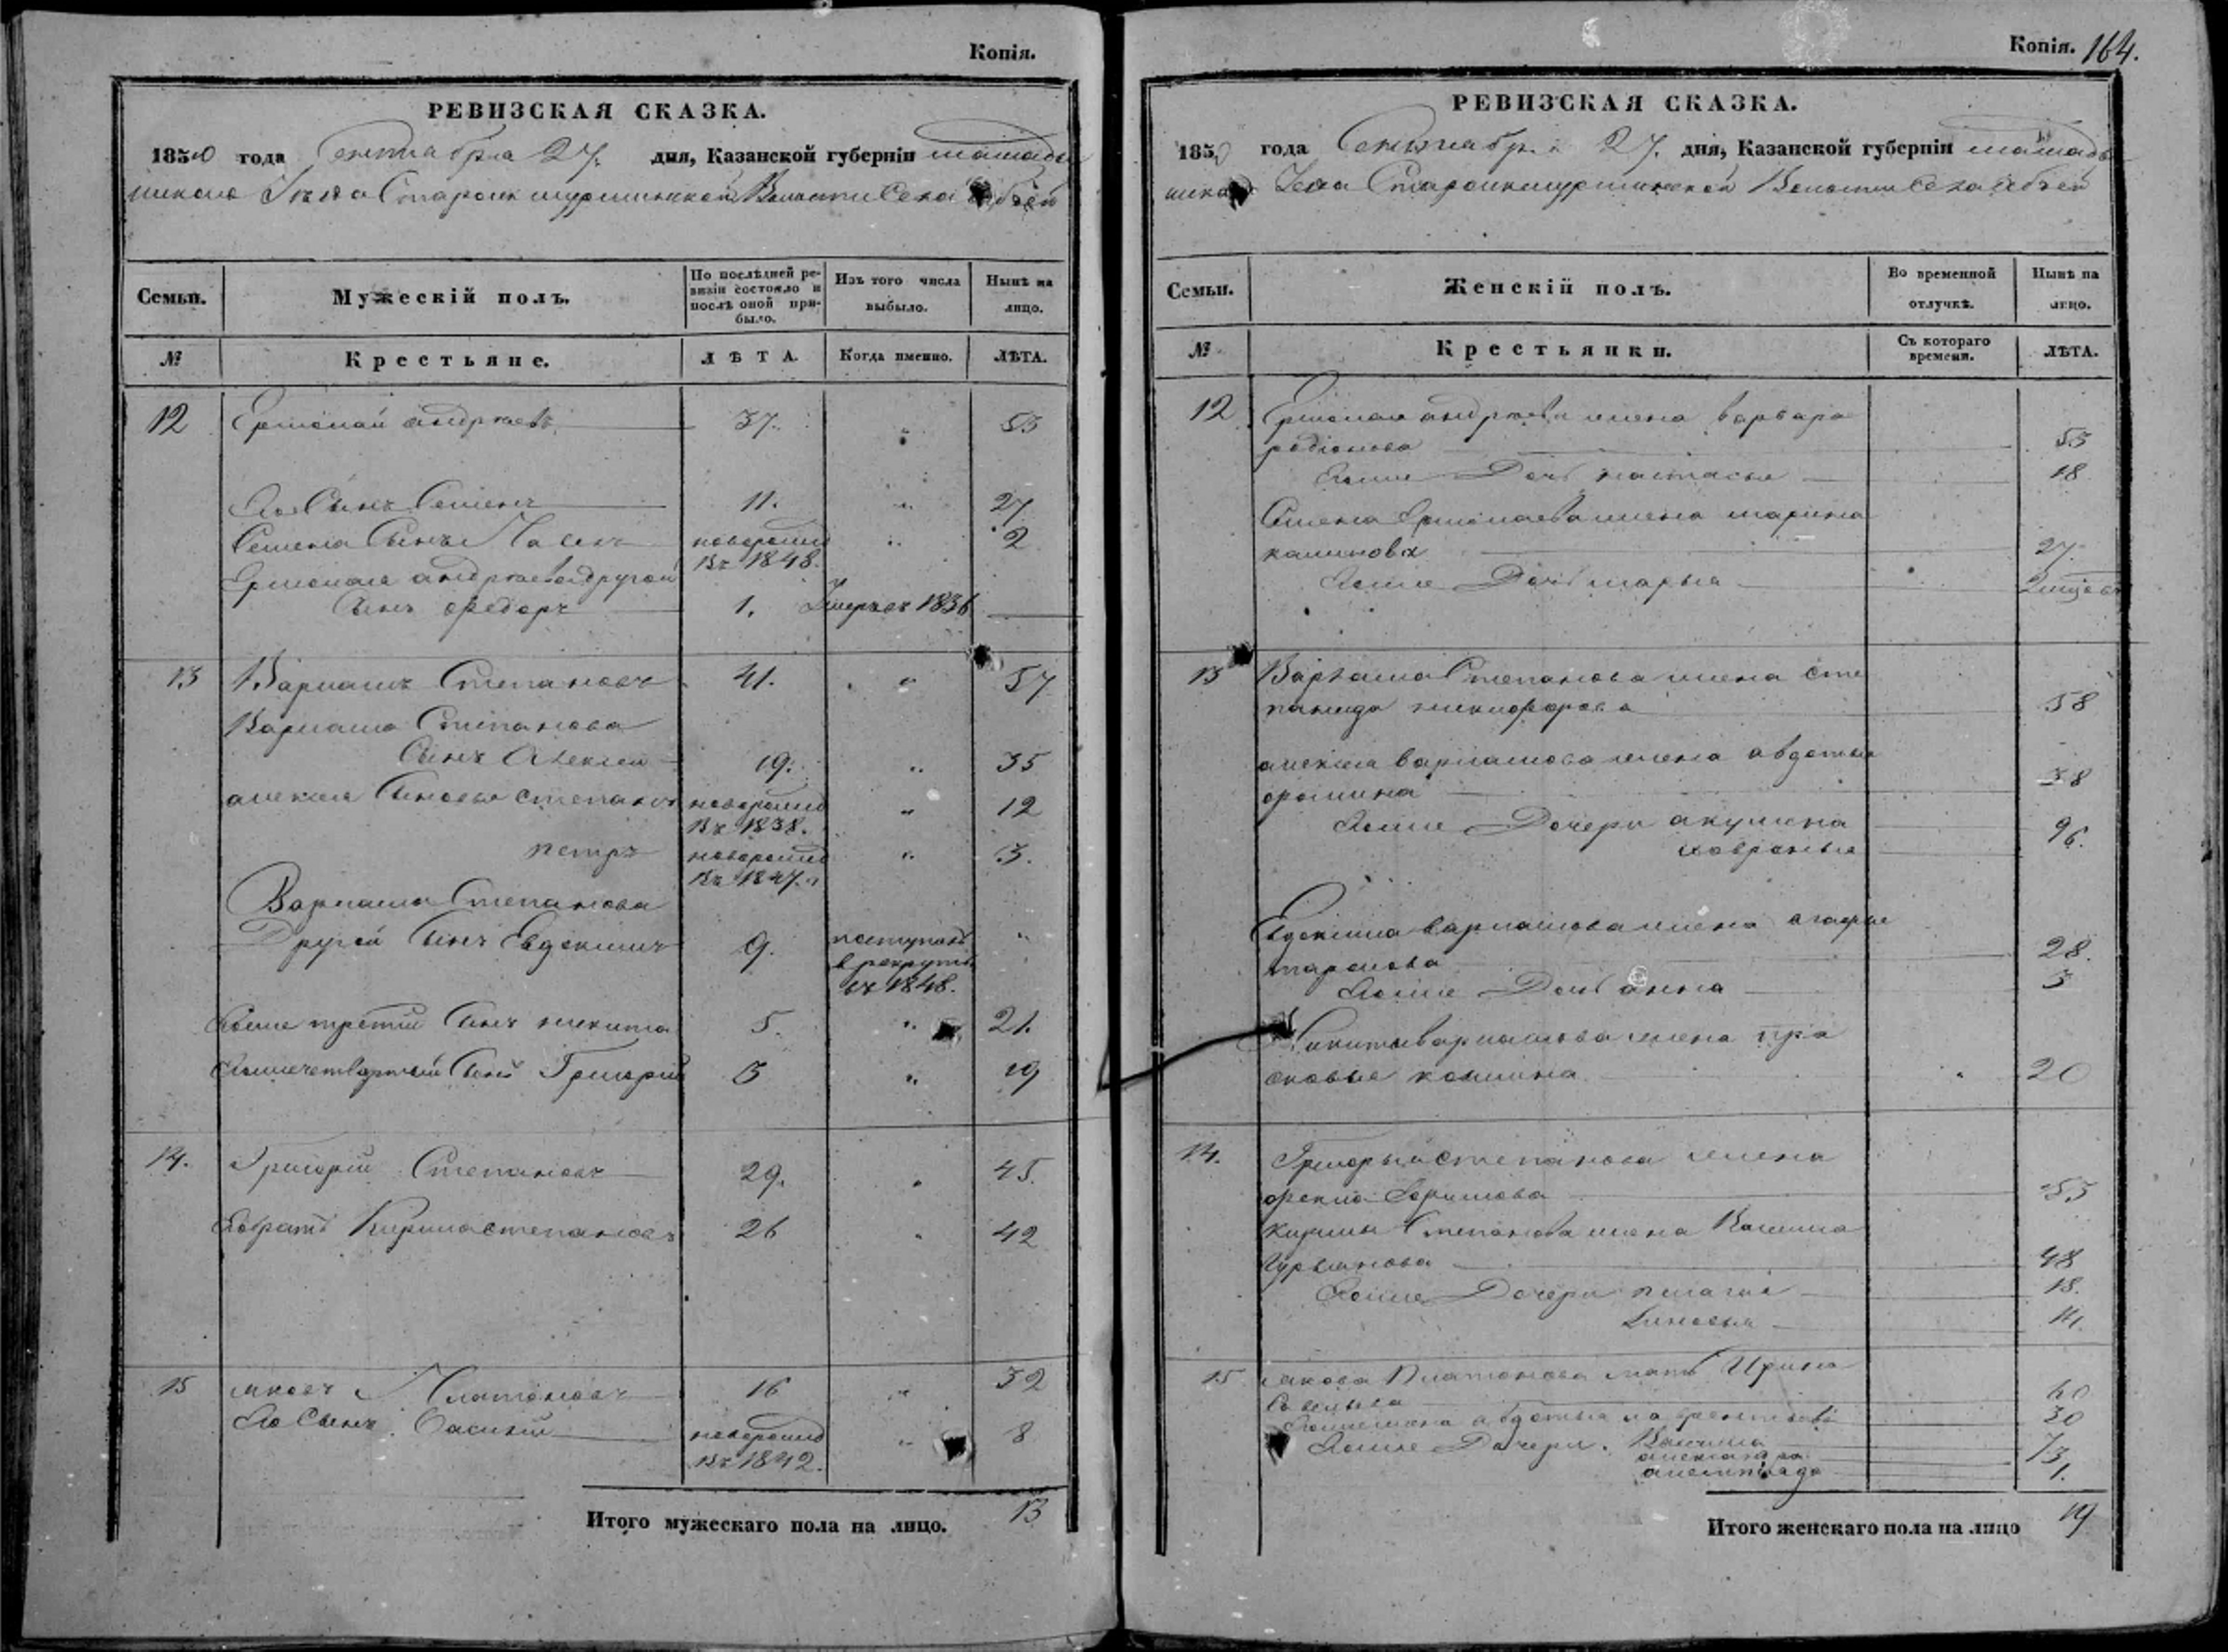 Копія.
РЕВИЗСКАЯ СКАЗКА.
1850 года Сентября 27. дня, Казанской губерніи мамады
шскаго Уѣзда Волости Села
Семьи. Мужескій полъ. По послѣдней ревизіи состояло и послѣ оной прибыло. Изъ того числа выбыло. Нынѣ на лицо.
№ Крестьяне. ЛѢТА. Когда именно. ЛѢТА.
12 Ермолай андреевъ 37. " 53
Его Сынъ Семенъ 11. " 27
Семена Сынъ новорожд " 2
въ 1848.
Ермолая андреева другой
Сынъ Федоръ 1. Умеръ въ 1836
13 Варламъ Степановъ 41. " 57
Варлама Степанова
Сынъ Алексей 19. " 35
алексея Сыновья степанъ новорожд " 12
въ 1838.
петръ новорожд " 3.
въ 1847.
Варлама Степанова
Другой Сынъ Евдокимъ 9. поступилъ "
в рекруты
въ 1848.
Его же третій Сынъ никита 5. " 21.
Его же четвертый Сынъ Григорий 3 " 19
14. Григорий Степановъ 29. " 45.
Его братъ Кирила степановъ 26 " 42
15 яковъ Платоновъ 16 " 32
Его Сынъ Василий новорожд " 8
въ 1842.
Итого мужескаго пола на лицо. 13
Копія. 164.
РЕВИЗСКАЯ СКАЗКА.
1850 года Сентябр. 27. дня, Казанской губерніи мамады
шскаго Уезда Волости Села
Семьи. Женскій полъ. Во временной отлучкѣ. Нынѣ на лицо.
№ Крестьянки. Съ котораго времени. ЛѢТА.
12 Ермолая андреева жена варвара
родіонова 53
Его же Дочь настасья 18
Семена Ермолаева жена марина
27
Его же Дочь марья
13 Варлама Степанова жена сте
панида никифорова 58
алексея варламова жена авдотья
38
Его же Дочери акулина 9
6.
Евдокима варламова жена агафья
тарасова 28.
Его же Дочь анна 3
Никиты варламова жена пра
сковья 20
14. Григорья степанова жена
53
кирилы Степанова жена
48
Его же Дочери пелагия 18.
Зиновья 14.
15 якова Платонова мать Ирина
60
Его же жена авдотья 30
Его же Дочери 7
александра 3
1.
Итого женскаго пола на лицо 19